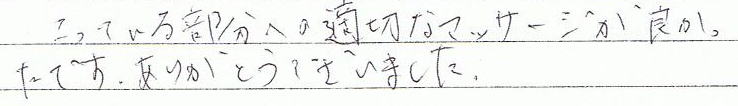 こっている部分への適切なマッサージが良かっ
たです。ありがとうございました。